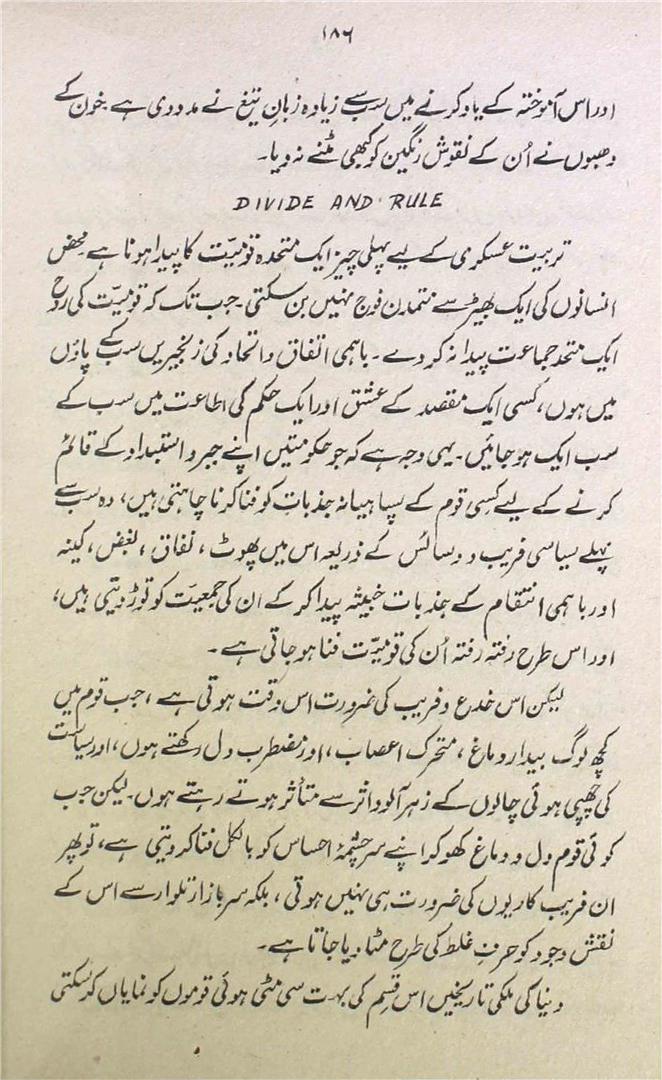 ۱۸۶
اور اس آموختہ کے یاد کرنے میں سب سے زیادہ زبانِ تیغ نے مدد دی ہے خون کے
دھبوں نے اُن کے نقوش رنگین کو کبھی مٹنے نہ دیا۔
DIVIDE AND RULE
تربیت عسکری کے لیے پہلی چیز ایک متحدہ قومیّت کا پیدا ہونا ہے محض
انسانوں کی ایک بھیڑ سے متمدن فوج نہیں بن سکتی۔ جب تک کہ قومیّت کی روح
ایک متحد جماعت پیدا نہ کر دے۔ باہمی اتفاق و اتحاد کی زنجیریں سب کے پاؤں
میں ہوں، کسی ایک مقصد کے عشق اور ایک حکم کی اطاعت میں سب کے
سب ایک ہو جائیں۔ یہی وجہ ہے کہ جو حکومتیں اپنے جبر و استبداد کے قائم
کرنے کے لیے کسی قوم کے سپاہیانہ جذبات کو فنا کرنا چاہتی ہیں، وہ سب سے
پہلے سیاسی فریب و دسائس کے ذریعہ اس میں پھوٹ، نفاق، بغض، کینہ
اور باہمی انتقام کے جذبات خبیثہ پیدا کر کے ان کی جمعیّت کو توڑ دیتی ہیں،
اور اس طرح رفتہ رفتہ اُن کی قومیّت فنا ہو جاتی ہے۔
لیکن اس خدع و فریب کی ضرورت اس وقت ہوتی ہے، جب قوم میں
کچھ لوگ بیدار دماغ، متحرک اعصاب، اور مضطرب دل رکھتے ہوں، اور سیاست
کی چھپی ہوئی چالوں کے زہر آلود اثر سے متأثر ہوتے رہتے ہوں۔ لیکن جب
کوئی قوم دل و دماغ کھو کر اپنے سرچشمۂ احساس کو بالکل فنا کر دیتی ہے، تو پھر
ان فریب کاریوں کی ضرورت ہی نہیں ہوتی، بلکہ سرِ بازار تلوار سے اس کے
نقش وجود کو حرفِ غلط کی طرح مٹا دیا جاتا ہے۔
دنیا کی ملکی تاریخیں اس قسم کی بہت سی مٹی ہوئی قوموں کو نمایاں کر سکتی